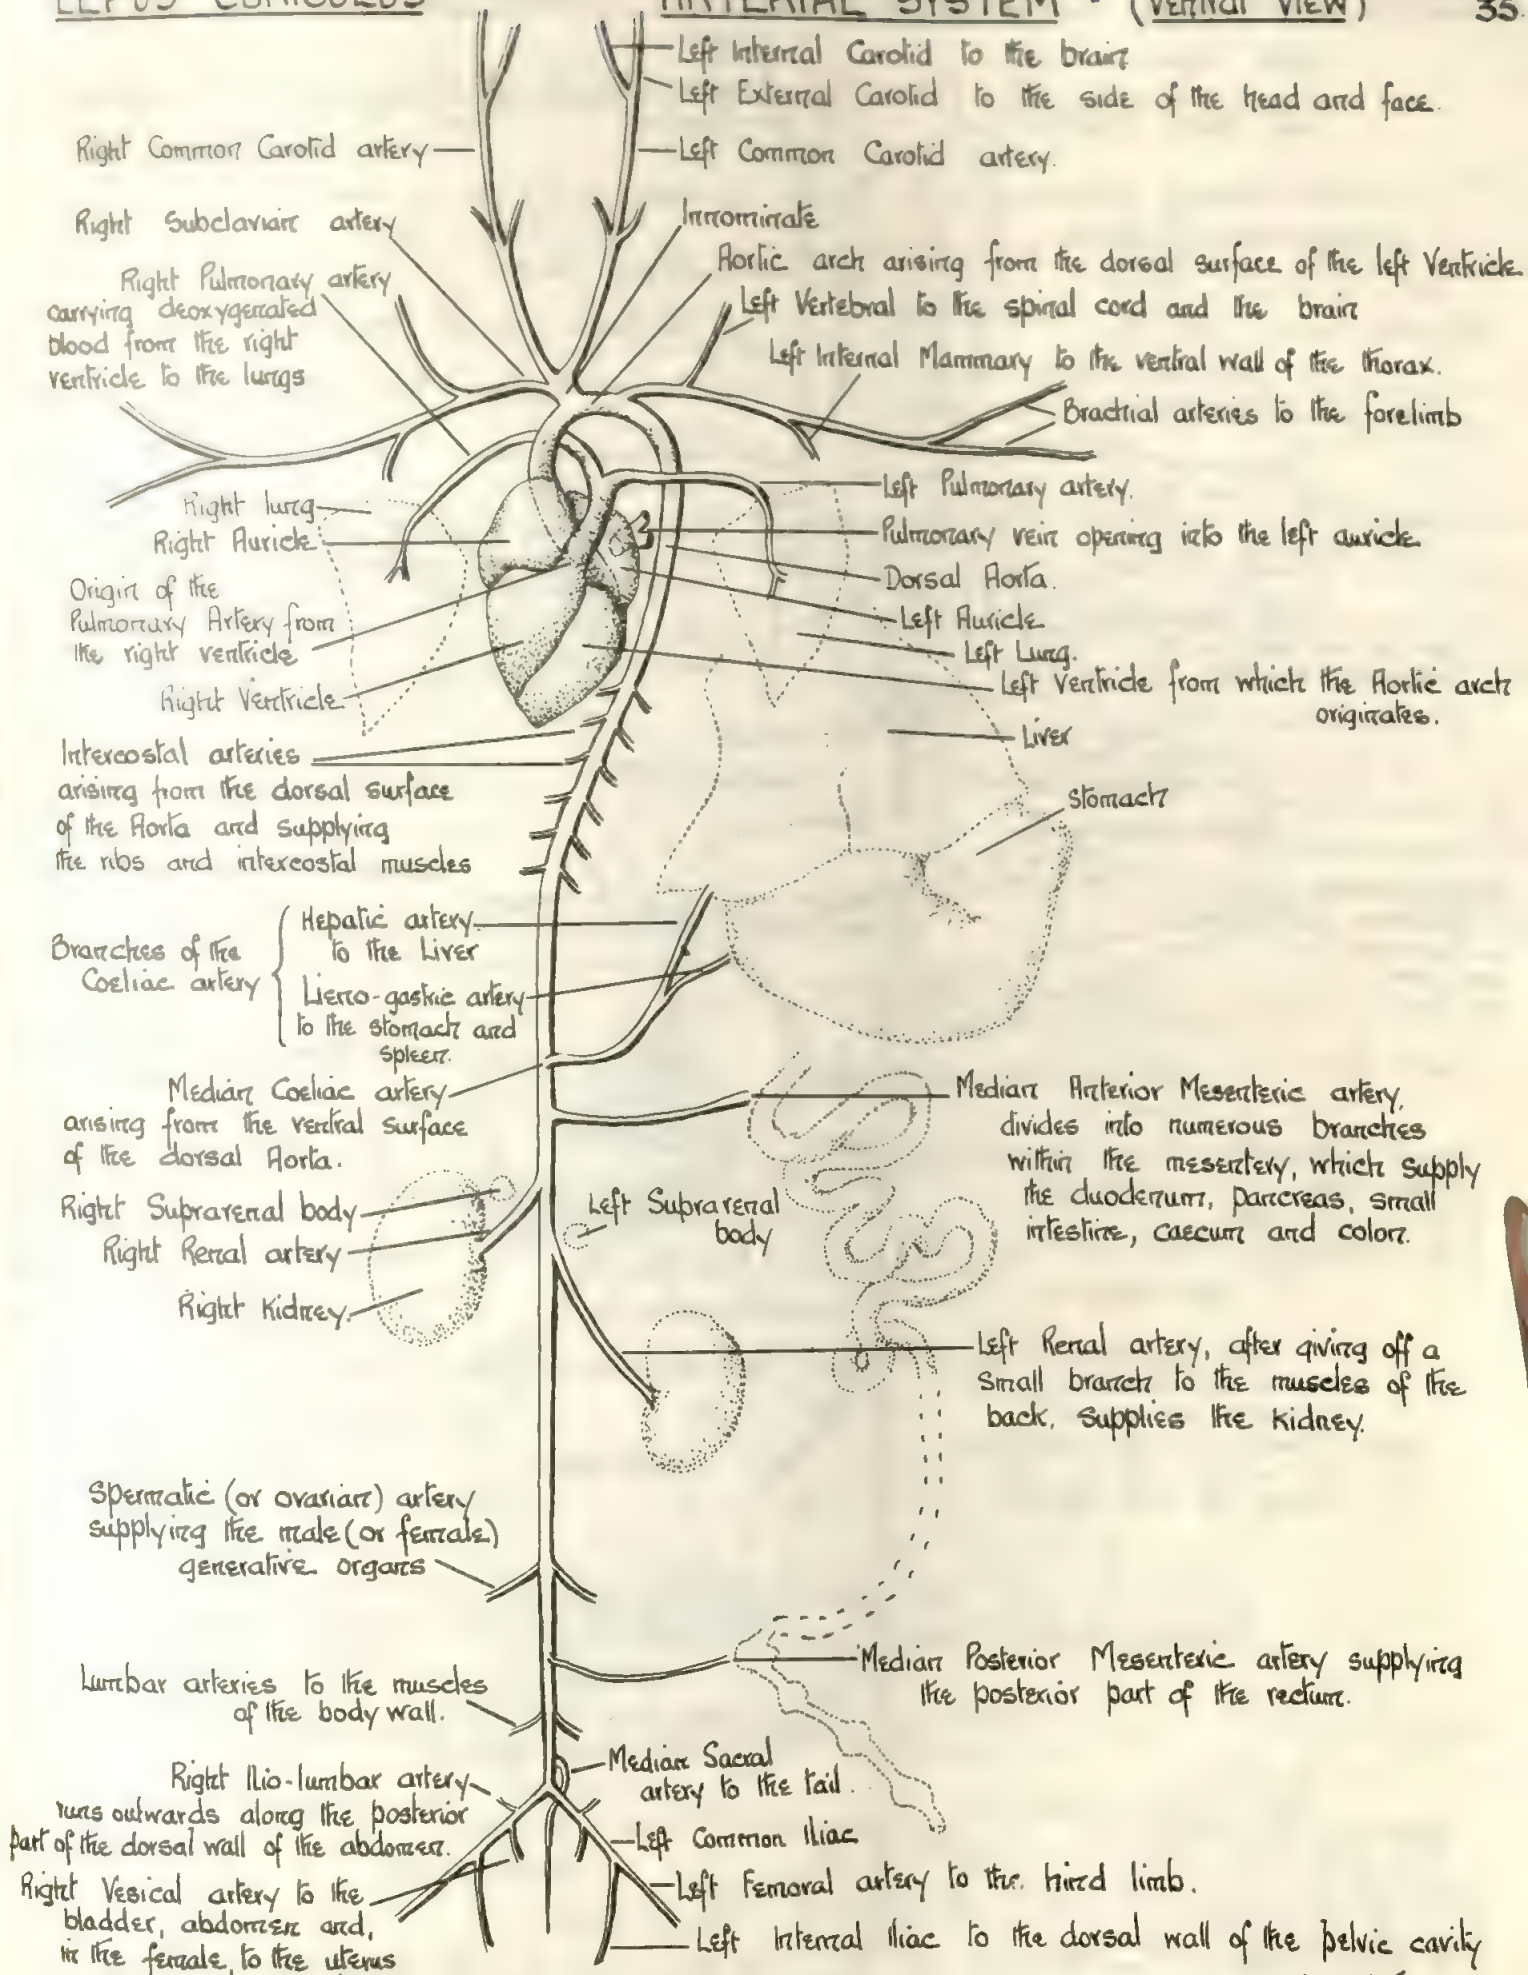 LEPUS CUNICULUS
ARTERIAL SYSTEM - (Ventral View)
35.
Left Internal Carotid to the brain
Left External Carotid to the side of the head and face.
Right Common Carotid artery
Left Common Carotid artery.
Right Subclavian artery
Innominate
Aortic arch arising from the dorsal surface of the left Ventricle.
Right Pulmonary artery
carrying deoxygenated
blood from the right
ventricle to the lungs
Left Vertebral to the spinal cord and the brain
Left Internal Mammary to the ventral wall of the thorax.
Brachial arteries to the forelimb
Right lung
Right Auricle
Origin of the
Pulmonary Artery from
the right ventricle
Right Ventricle
Left Pulmonary artery.
Pulmonary vein opening into the left auricle
Dorsal Aorta.
Left Auricle
Left Lung.
Left Ventricle from which the Aortic arch
originates.
Liver
Stomach
Intercostal arteries
arising from the dorsal surface
of the Aorta and supplying
the ribs and intercostal muscles
Branches of the
Coeliac artery
Hepatic artery
to the Liver
Lieno-gastric artery
to the stomach and
spleen.
Median Coeliac artery
arising from the ventral surface
of the dorsal Aorta.
Median Anterior Mesenteric artery,
divides into numerous branches
within the mesentery, which supply
the duodenum, pancreas, small
intestine, caecum and colon.
Right Suprarenal body
Right Renal artery
Right Kidney.
Left Suprarenal
body
Left Renal artery, after giving off a
small branch to the muscles of the
back, supplies the kidney.
Spermatic (or ovarian) artery
supplying the male (or female)
generative organs
Median Posterior Mesenteric artery supplying
the posterior part of the rectum.
Lumbar arteries to the muscles
of the body wall.
Right Ilio-lumbar artery
runs outwards along the posterior
part of the dorsal wall of the abdomen.
Median Sacral
artery to the tail.
Left Common Iliac
Right Vesical artery to the
bladder, abdomen and,
in the female, to the uterus
Left Femoral artery to the hind limb.
Left Internal Iliac to the dorsal wall of the pelvic cavity